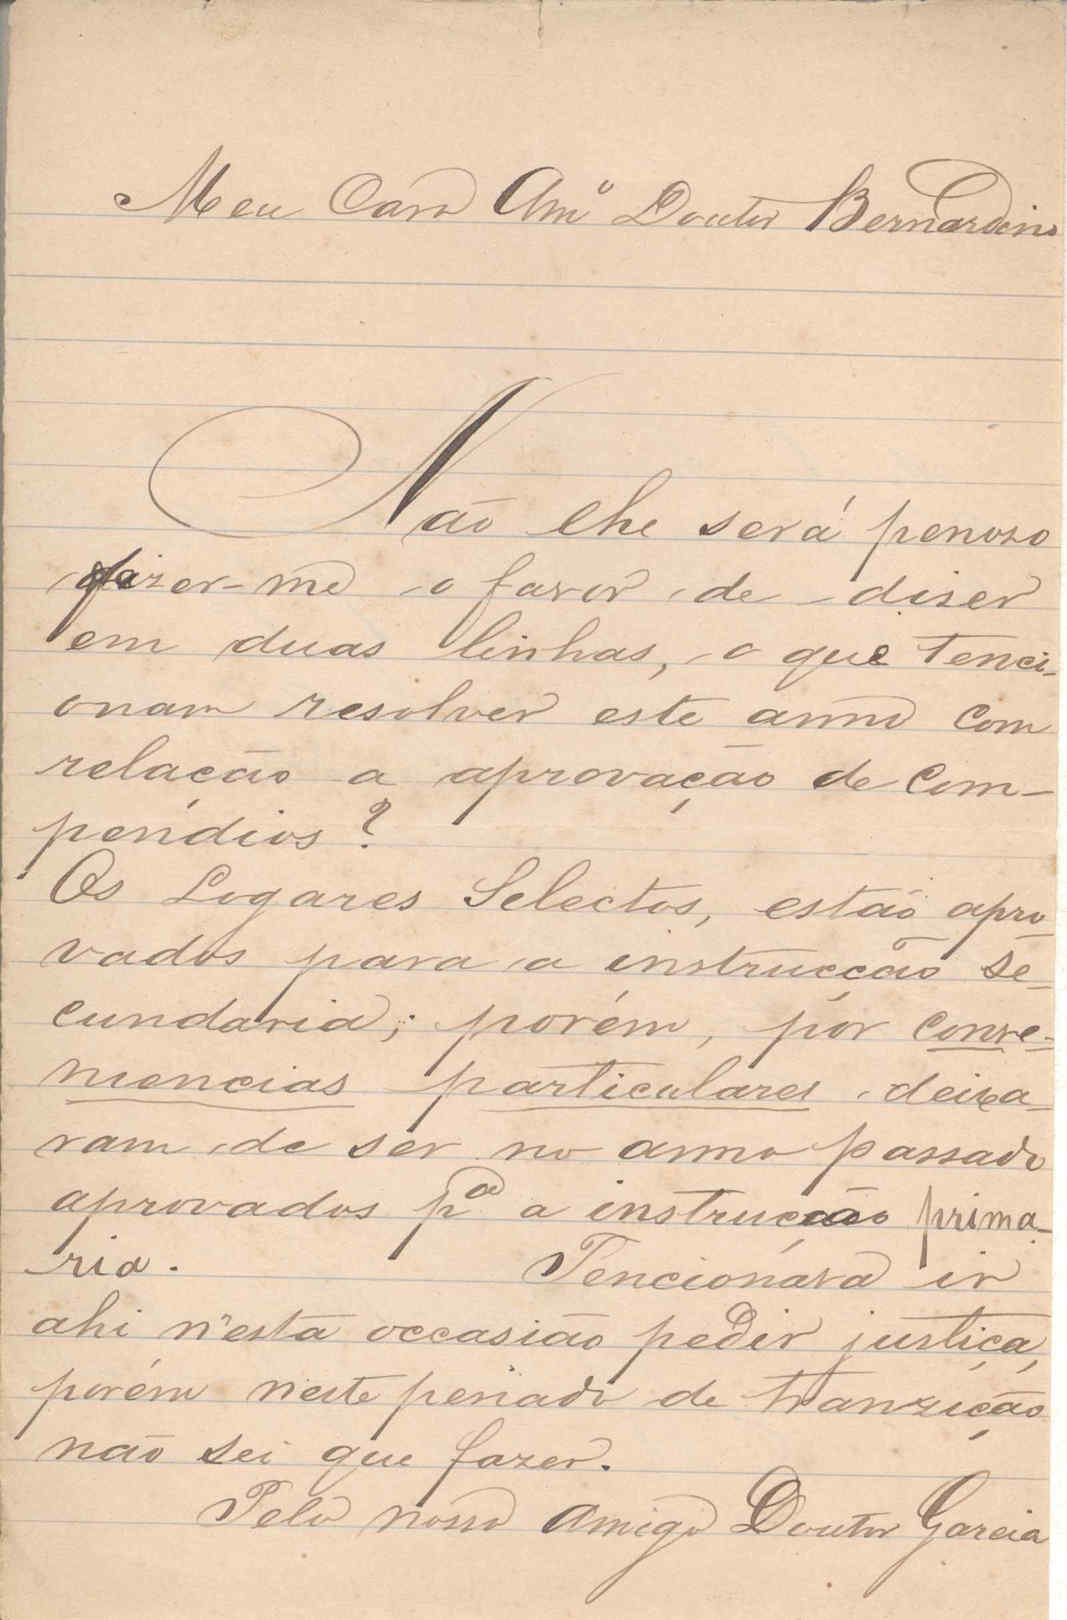 Meu Caro Amº Doutor Bernardino
Não lhe será penoso
fazer-me o favor de diser
em duas linhas, o que tenci-
onam resolver este anno com
relação a aprovação de com-
pendios?
Os Logares Selectos, estão apro-
vados para a instrucção se-
cundaria; porém, por conve-
niencias particulares deixa-
ram de ser no anno passado
aprovados pª a instrucção prima-
ria. Tencionava ir
ahi n'esta occasião pedir justiça,
porém n'este periodo de tranzição
não sei que fazer.
Pelo nosso amigo Doutor Garcia